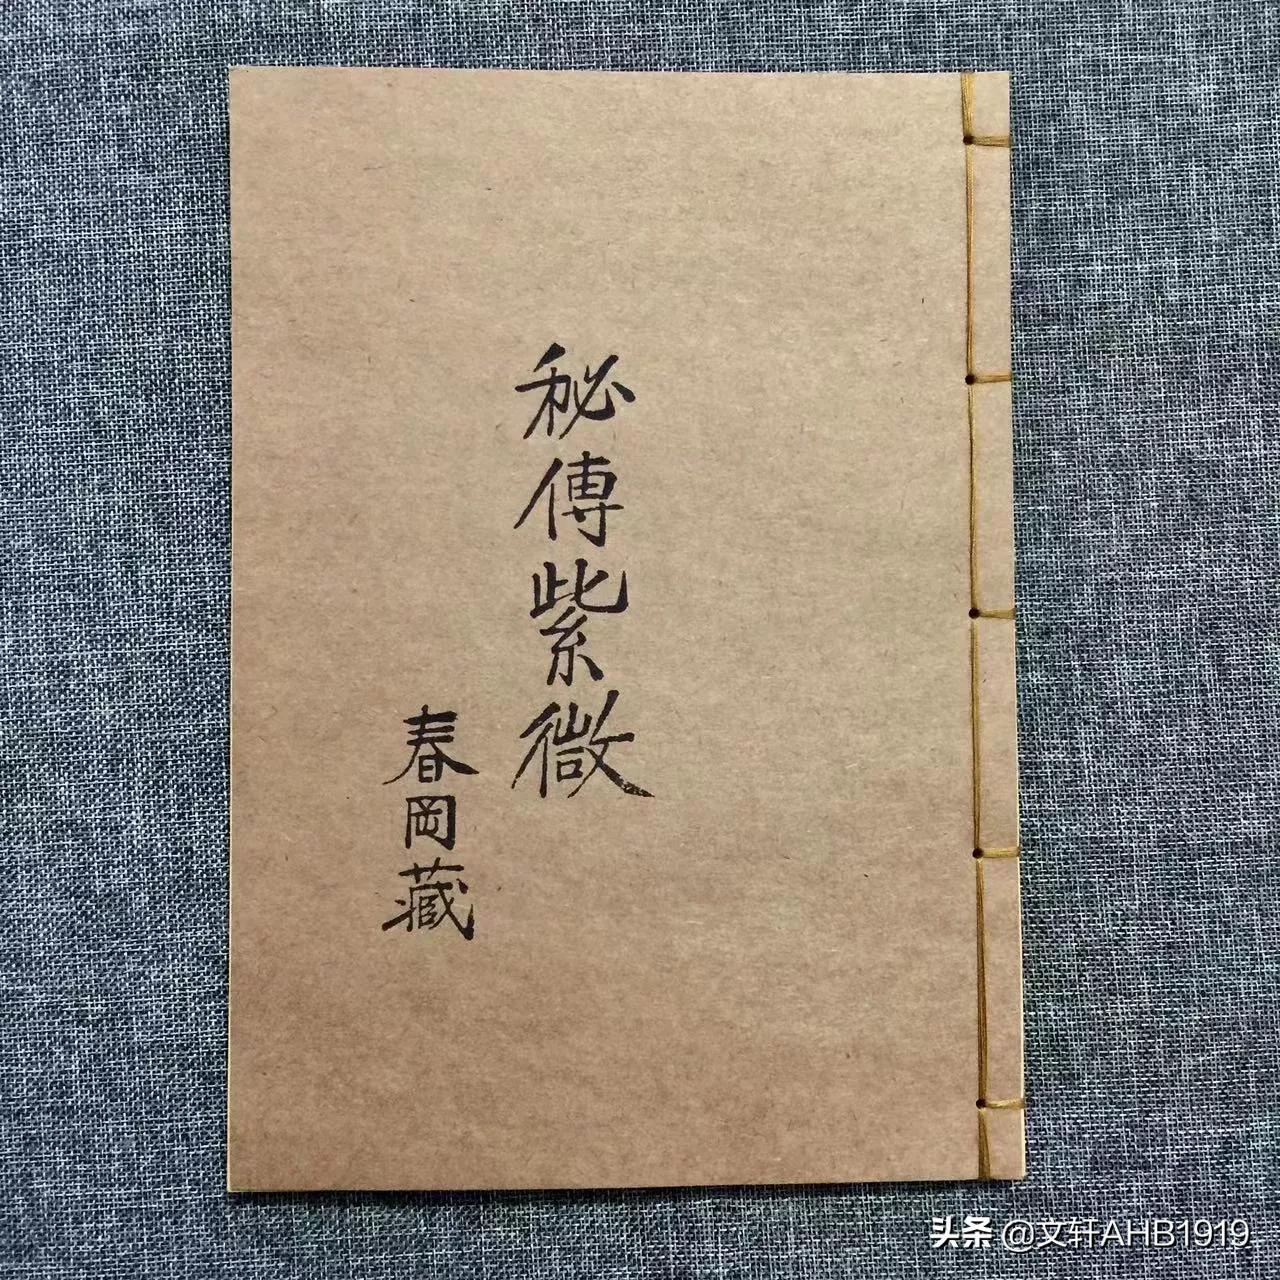 秘傳紫微
春岡藏
头条 @文轩AHB1919